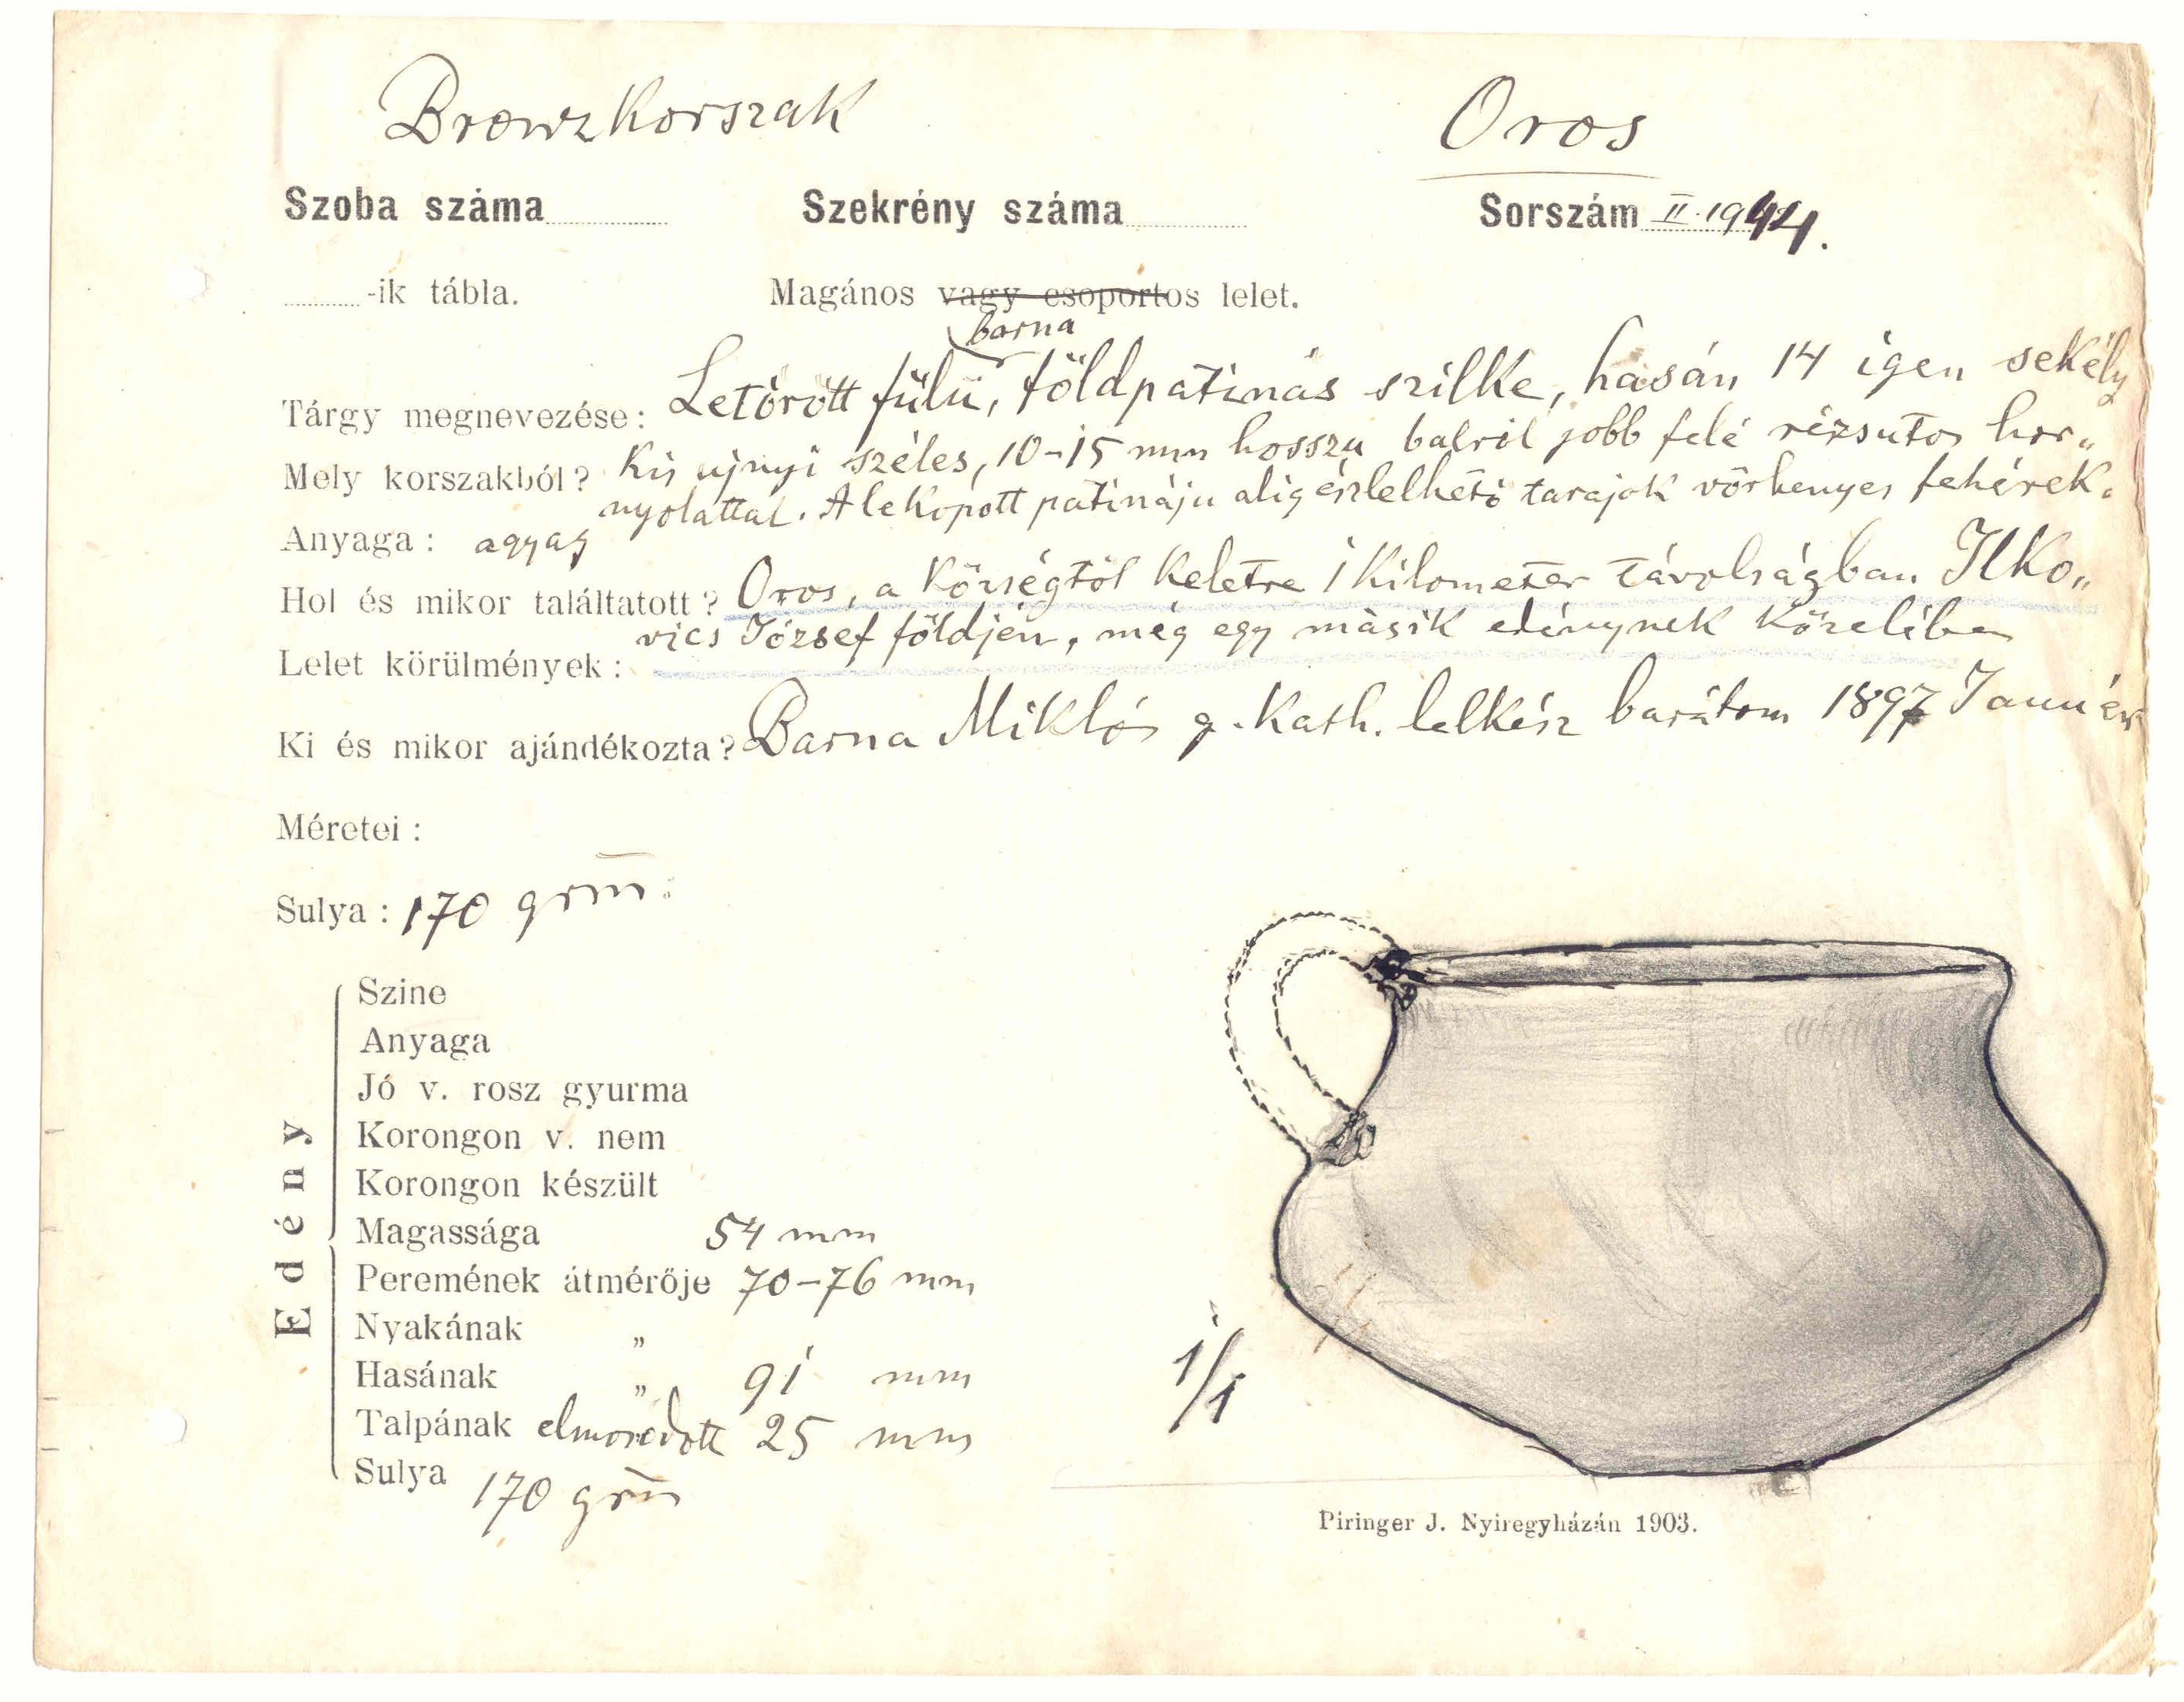 Bronzkorszak Oros
Szoba száma Szekrény száma Sorszám II. 1944.
-ik tábla. Magános vagy csoportos lelet.
barna
Tárgy megnevezése: Letörött fülü, földpatinás szilke, hasán 14 igen sekély
Mely korszakból? Kis ujnyi széles, 10-15 mm hosszu balról jobb felé rézsutos hor„
nyolattal. A lekopott patináju alig észlelhető tarajok vörhenyes fehérek.
Anyaga: agyag
Hol és mikor találtatott? Oros, a községtöl keletre 1 kilometer távolságban Ilko„
vics József földjén, még egy másik edénynek közelében
Lelet körülmények:
Ki és mikor ajándékozta? Barna Miklós g. kath. lelkész barátom 1897 Január
Méretei:
Sulya: 170 grm.
Edény
Szine
Anyaga
Jó v. rosz gyurma
Korongon v. nem
Korongon készült
Magassága 54 mm
Peremének átmérője 70-76 mm
Nyakának „
Hasának „ 91 mm
Talpának 25 mm
Sulya 170 grm
1/1
Piringer J. Nyiregyházán 1903.